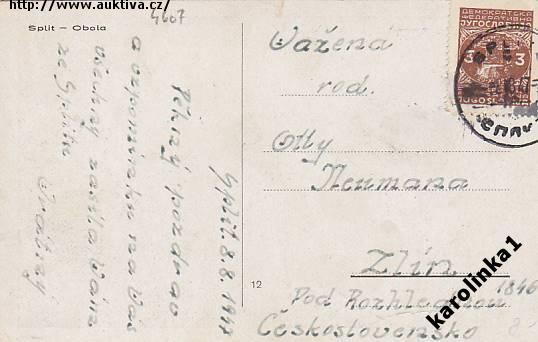 http://www.auktiva.cz/
4607
Split — Obala
Split 8.8. 1948
Pěkný pozdrav
a vzpomínku na Vás
všechny zasílá Vám
ze Splitu
Vážená
rod.
Otty
Neumana
Zlín
1846
Pod Rozhlednou
Československo
12
ДЕМОКРАТСКА
ФЕДЕРАТИВНА
ЈУГОСЛАВИЈА
3 3
JUGOSLAVIJA
karolinka1